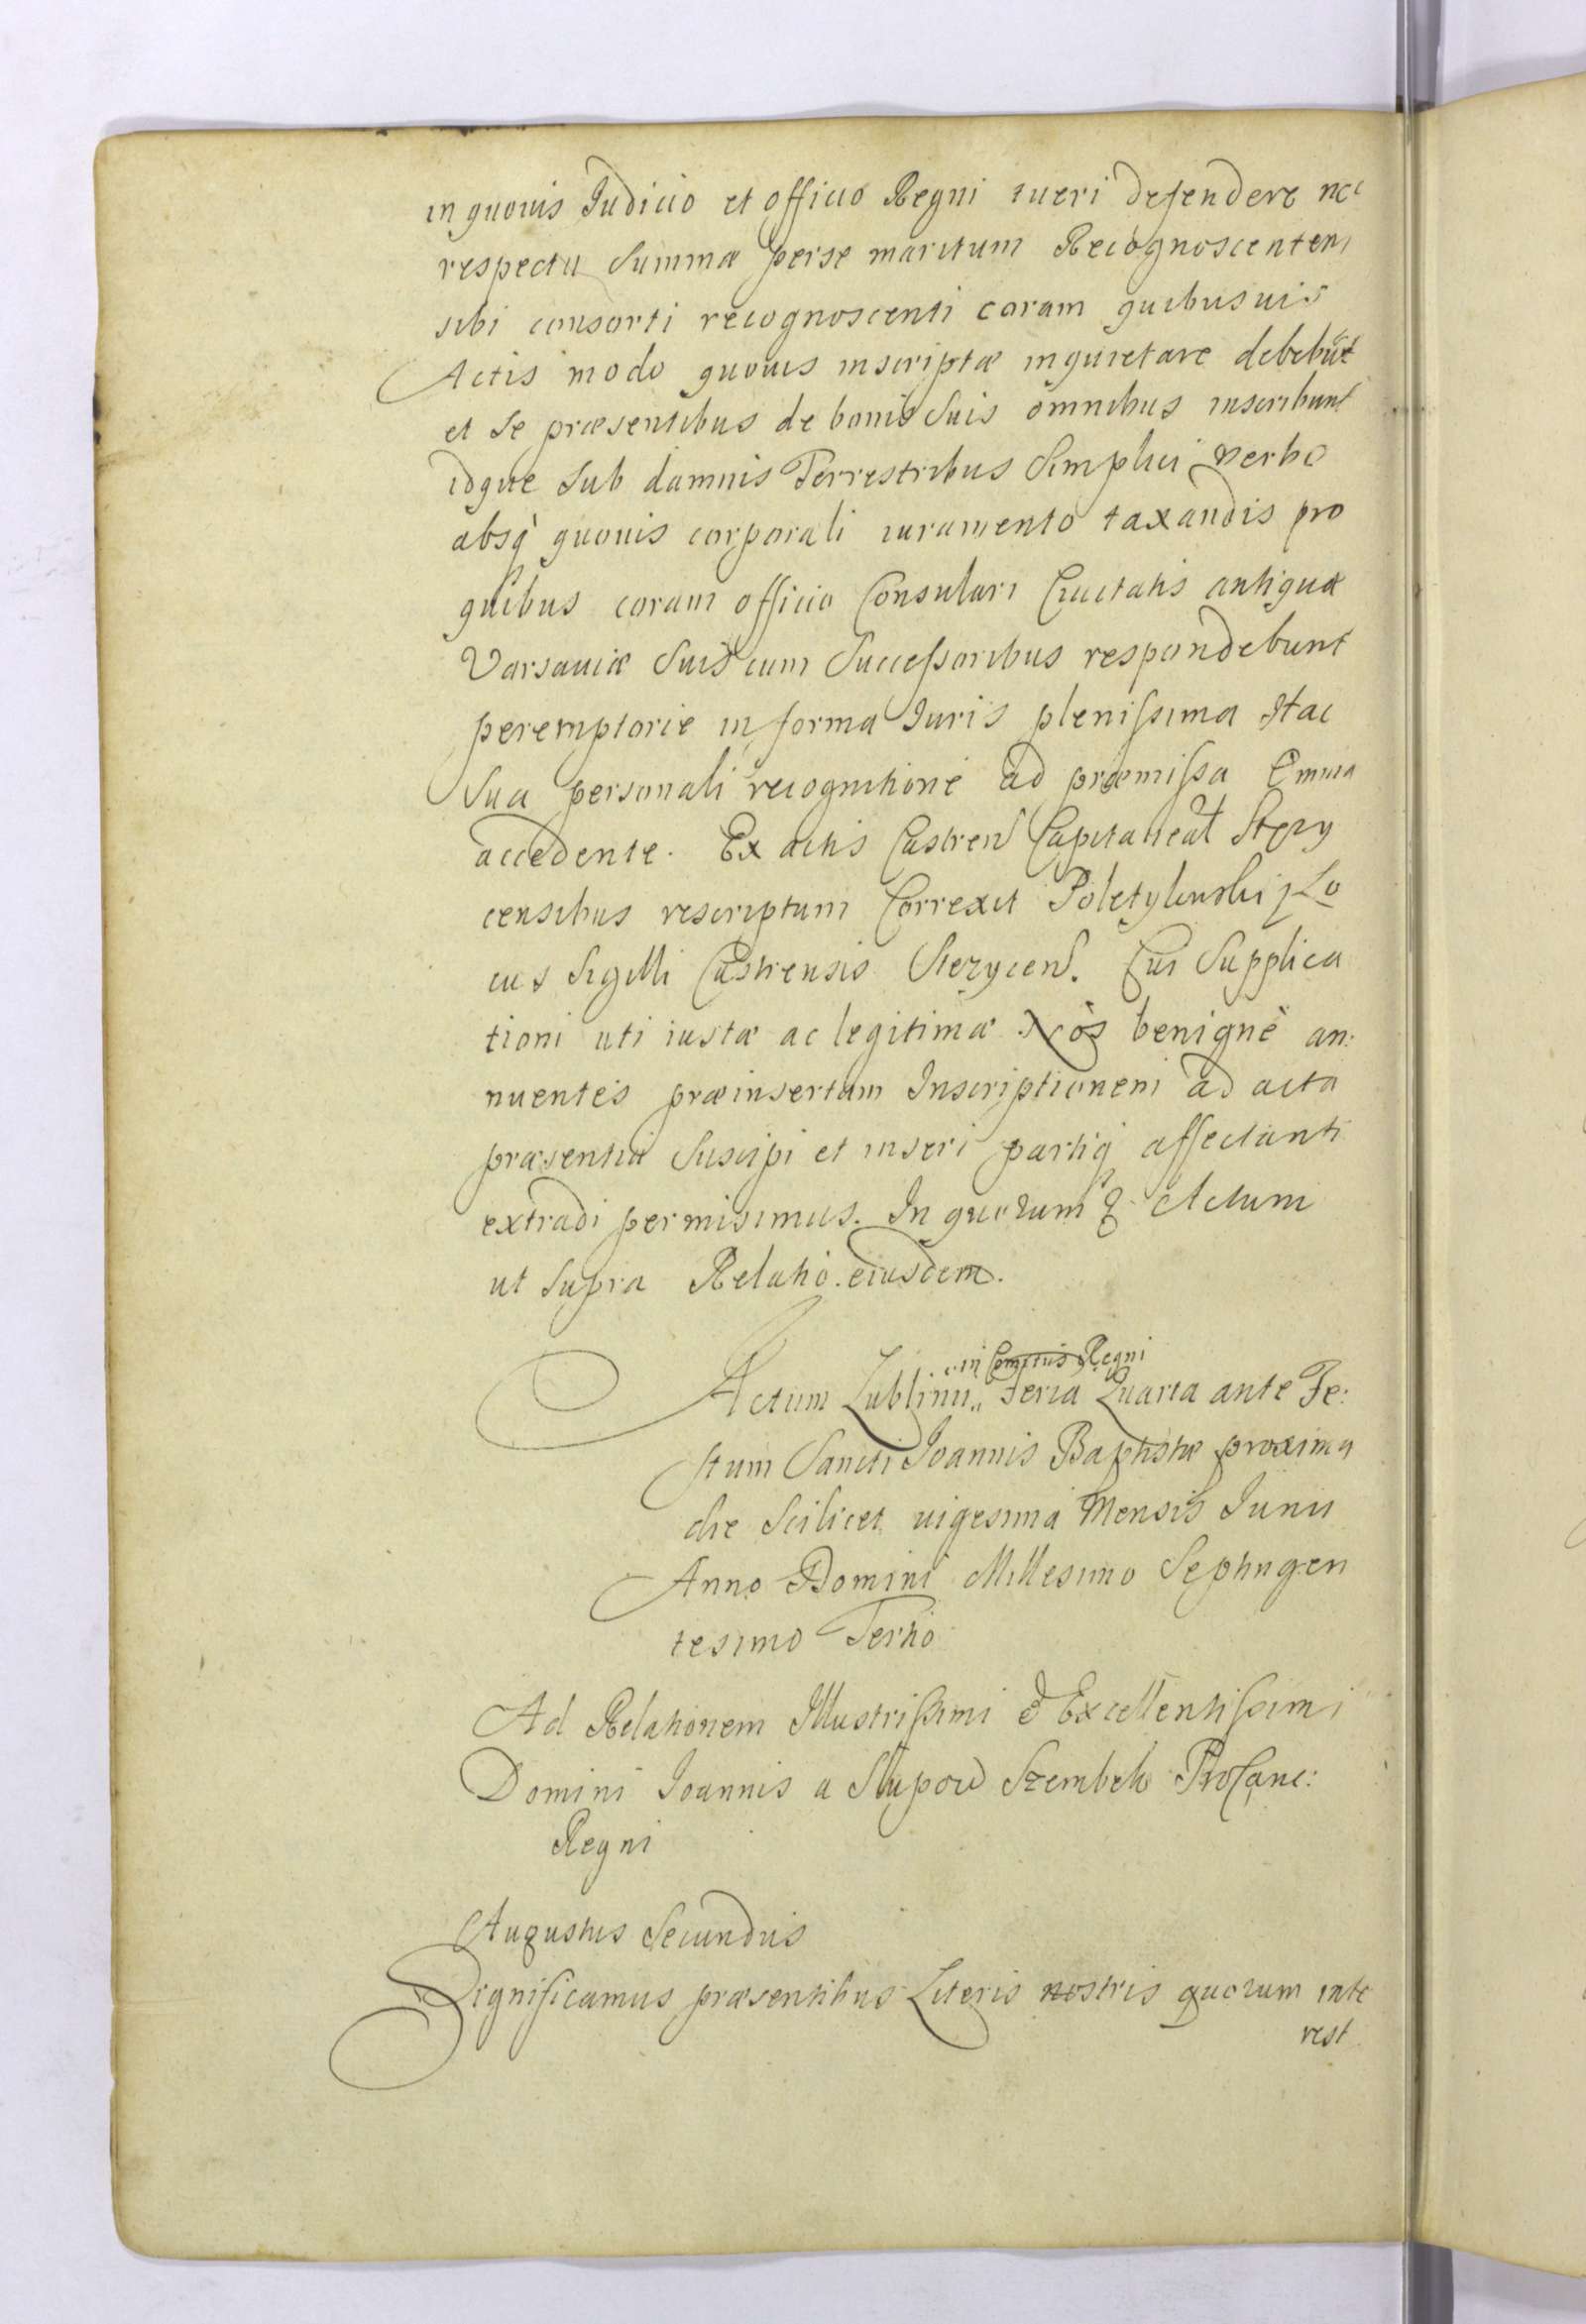 in quouis Judicio et officio Regni tueri defendere nec
respectu Summæ per se maritum Recognoscentem
sibi consorti recognoscenti coram quibusuis
Actis modo quouis inscriptæ inquietare debebūt
et se præsentibus de bonis Suis omnibus inscribunt
idque Sub damnis Terrestribus Simplici verbo
absq̀ quouis corporali iuramento taxandis pro
quibus coram officio Consulari Ciuitatis antiquæ
Varsauiæ Suis cum Successoribus respondebunt
peremptorie in forma Iuris plenissima Hac
Sua personali recognitione ad præmissa Omnia
accedente. Ex actis Castren Capitaneat Stezy
censibus rescriptum Correxit Poletylinski Lo
cus Sigilli Castrensis Stezycen. Cui Supplica
tioni uti iustæ ac legitimæ Nòs benignè an:
nuentes præinsertam Inscriptionem ad acta
præsentia Suscipi et inseri partiq affectanti
extradi permisimus. In quorum Actum
ut Supra Relatio eiusdem.
in Comitiis Regni
Actum Lublini,, Feria Quarta ante Fe:
stum Sancti Joannis Baptistæ proxima
die Scilicet uigesima Mensis Junii
Anno Domini Millesimo Septingen
tesimo Tertio
Ad Relationem Illustrissimi & Excellentissimi
Domini Joannis a Slupow Szembek ProCanc:
Regni
Augustus Secundus
Significamus præsentibus Literis nostris quorum inte
rest